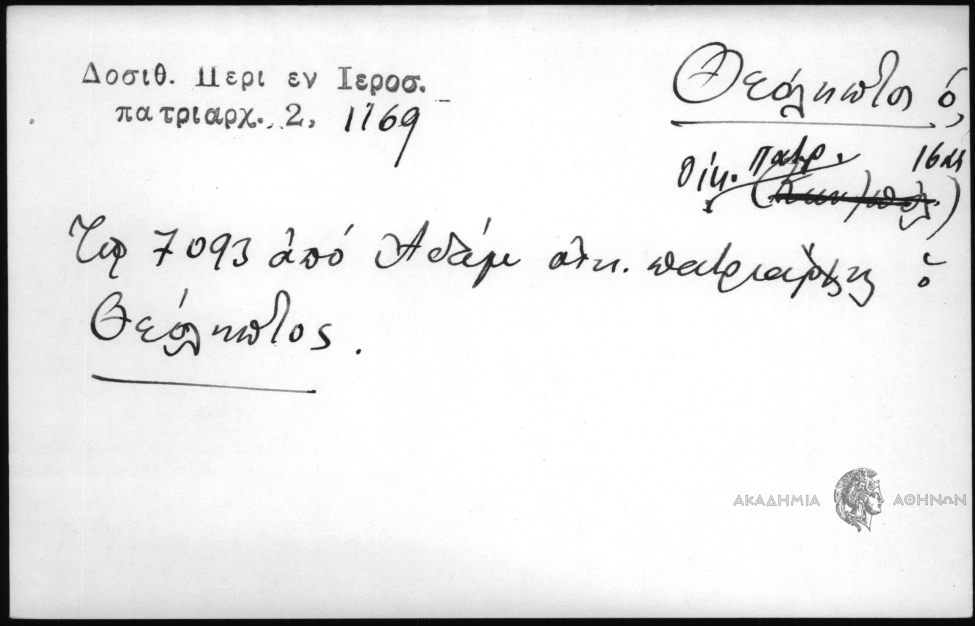 Δοσιθ. Περι εν Ιεροσ.
πατριαρχ. 2, 1169
Θεόληπτος ὁ,
Οἰκ. πατρ. 16 αι
Τῷ 7093 ἀπό Ἀδάμ οἰκ. πατριάρχης ὁ
Θεόληπτος.
ΑΚΑΔΗΜΙΑ ΑΘΗΝΩΝ